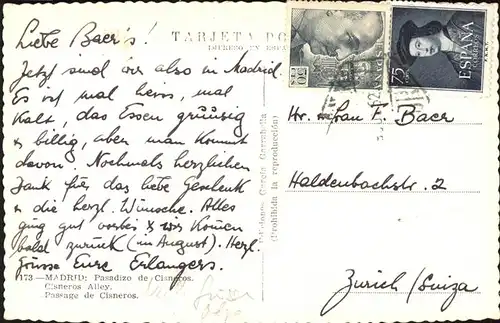 TARJETA PO
IMPRESO EN ESPA
Liebe Baer's!
Jetzt sind wir also in Madrid.
Es ist mal heiss, mal
kalt, das Essen grüüsig
& billig, aber man kommt
davon. Nochmals herzlichen
Dank für das liebe Geschenk
& die herzl. Wünsche. Alles
ging gut vorbei & wir kommen
bald zurück (in August). Herzl.
Grüsse Eure Erlangers.
173.—MADRID: Pasadizo de Cisneros.
Cisneros Alley.
Passage de Cisneros.
Ediciones García Garrabella
(Prohibida la reproducción)
75
ESPAÑA
CORREOS
Hr. & Frau F. Baer
Haldenbachstr. 2
Zurich (Suiza)